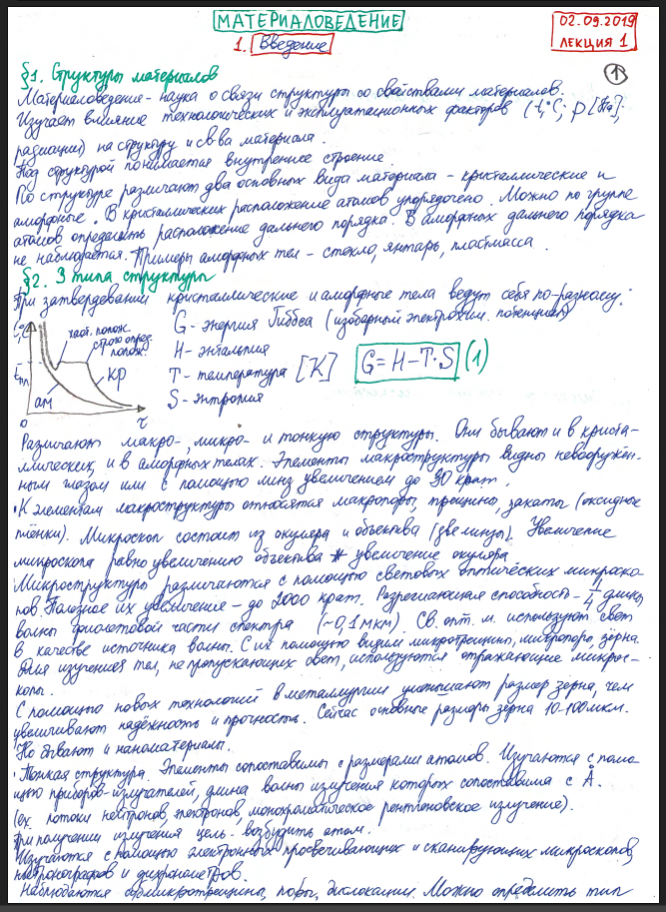 МАТЕРИАЛОВЕДЕНИЕ
02.09.2019
ЛЕКЦИЯ 1
1. Введение
1
§1. Структуры материалов
Материаловедение - наука о связи структуры со свойствами материалов.
Изучает влияние технологических и эксплуатационных факторов (t,°C; p [Па];
радиации) на структуру и св-ва материала.
Под структурой понимается внутреннее строение.
По структуре различают два основных вида материала - кристаллические и
аморфные. В кристаллических расположение атомов упорядочено. Можно по группе
атомов определить расположение дальнего порядка. В аморфных дальнего порядка
не наблюдается. Примеры аморфных тел - стекло, янтарь, пластмасса.
§2. 3 типа структуры
При затвердевании кристаллические и аморфные тела ведут себя по-разному:
t,°C
хаот. полож.
строго опред.
полож.
tпл
ам
кр
0
τ
G - энергия Гиббса (изобарный электрохим. потенциал)
H - энтальпия
T - температура [K]
G=H-T·S (1)
S - энтропия
Различают макро-, микро- и тонкую структуры. Они бывают и в криста-
ллических, и в аморфных телах. Элементы макроструктуры видны невооружён-
ным глазом или с помощью линз увеличением до 30 крат.
·К элементам макроструктуры относятся макропоры, трещины, закаты (оксидные
плёнки). Микроскоп состоит из окуляра и объектива (две линзы). Увеличение
микроскопа равно увеличению объектива * увеличение окуляра
·Микроструктуры различаются с помощью световых оптических микроско-
пов. Полезное их увеличение - до 2000 крат. Разрешающая способность - 1/4 длины
волны фиолетовой части спектра (~0,1 мкм). Св. опт. м. используют свет
в качестве источника волны. С их помощью видим микротрещины, микропоры, зёрна.
Для изучения тел, не пропускающих свет, используются отражающие микрос-
копы.
С помощью новых технологий в металлургии уменьшают размер зерна, чем
увеличивают надёжность и прочность. Сейчас основные размеры зерна 10-100 мкм.
Но бывают и наноматериалы.
·Тонкая структура. Элементы сопоставимы с размерами атомов. Изучаются с помо-
щью приборов-излучателей, длина волны излучения которых сопоставима с Å.
(ex. потоки нейтронов, электронов, монохроматическое рентгеновское излучение).
При получении излучения цель - возбудить атом.
Изучаются с помощью электронных просвечивающих и сканирующих микроскопов,
нейтронографов и дифрактометров.
Наблюдаются субмикротрещины, поры, дислокации. Можно определить тип